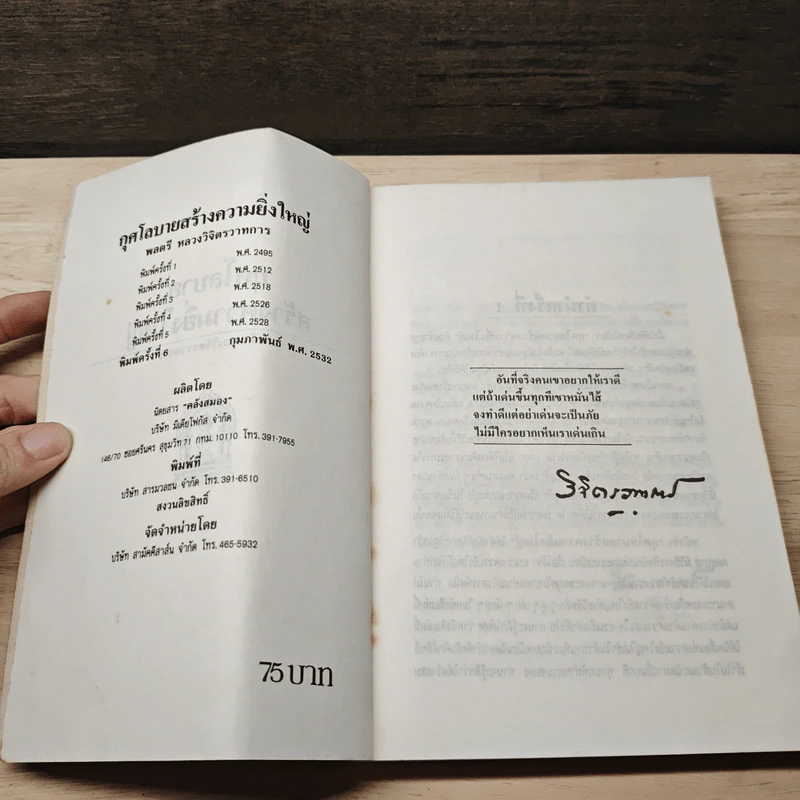 กุศโลบายสร้างความยิ่งใหญ่
พลตรี หลวงวิจิตรวาทการ
พิมพ์ครั้งที่ 1 พ.ศ. 2495
พิมพ์ครั้งที่ 2 พ.ศ. 2512
พิมพ์ครั้งที่ 3 พ.ศ. 2518
พิมพ์ครั้งที่ 4 พ.ศ. 2526
พิมพ์ครั้งที่ 5 พ.ศ. 2528
พิมพ์ครั้งที่ 6 กุมภาพันธ์ พ.ศ. 2532
ผลิตโดย
นิตยสาร "คลังสมอง"
บริษัท มีเดียโฟกัส จำกัด
146/70 ซอยศรีนคร สุขุมวิท 71 กทม. 10110 โทร. 391-7955
พิมพ์ที่
บริษัท สารมวลชน จำกัด โทร. 391-6510
สงวนลิขสิทธิ์
จัดจำหน่ายโดย
บริษัท สามัคคีสาส์น จำกัด โทร. 465-5932
75 บาท
อันที่จริงคนเขาอยากให้เราดี
แต่ถ้าเด่นขึ้นทุกทีเขาหมั่นไส้
จงทำดีแต่อย่าเด่นจะเป็นภัย
ไม่มีใครอยากเห็นเราเด่นเกิน
วิจิตรวาทการ